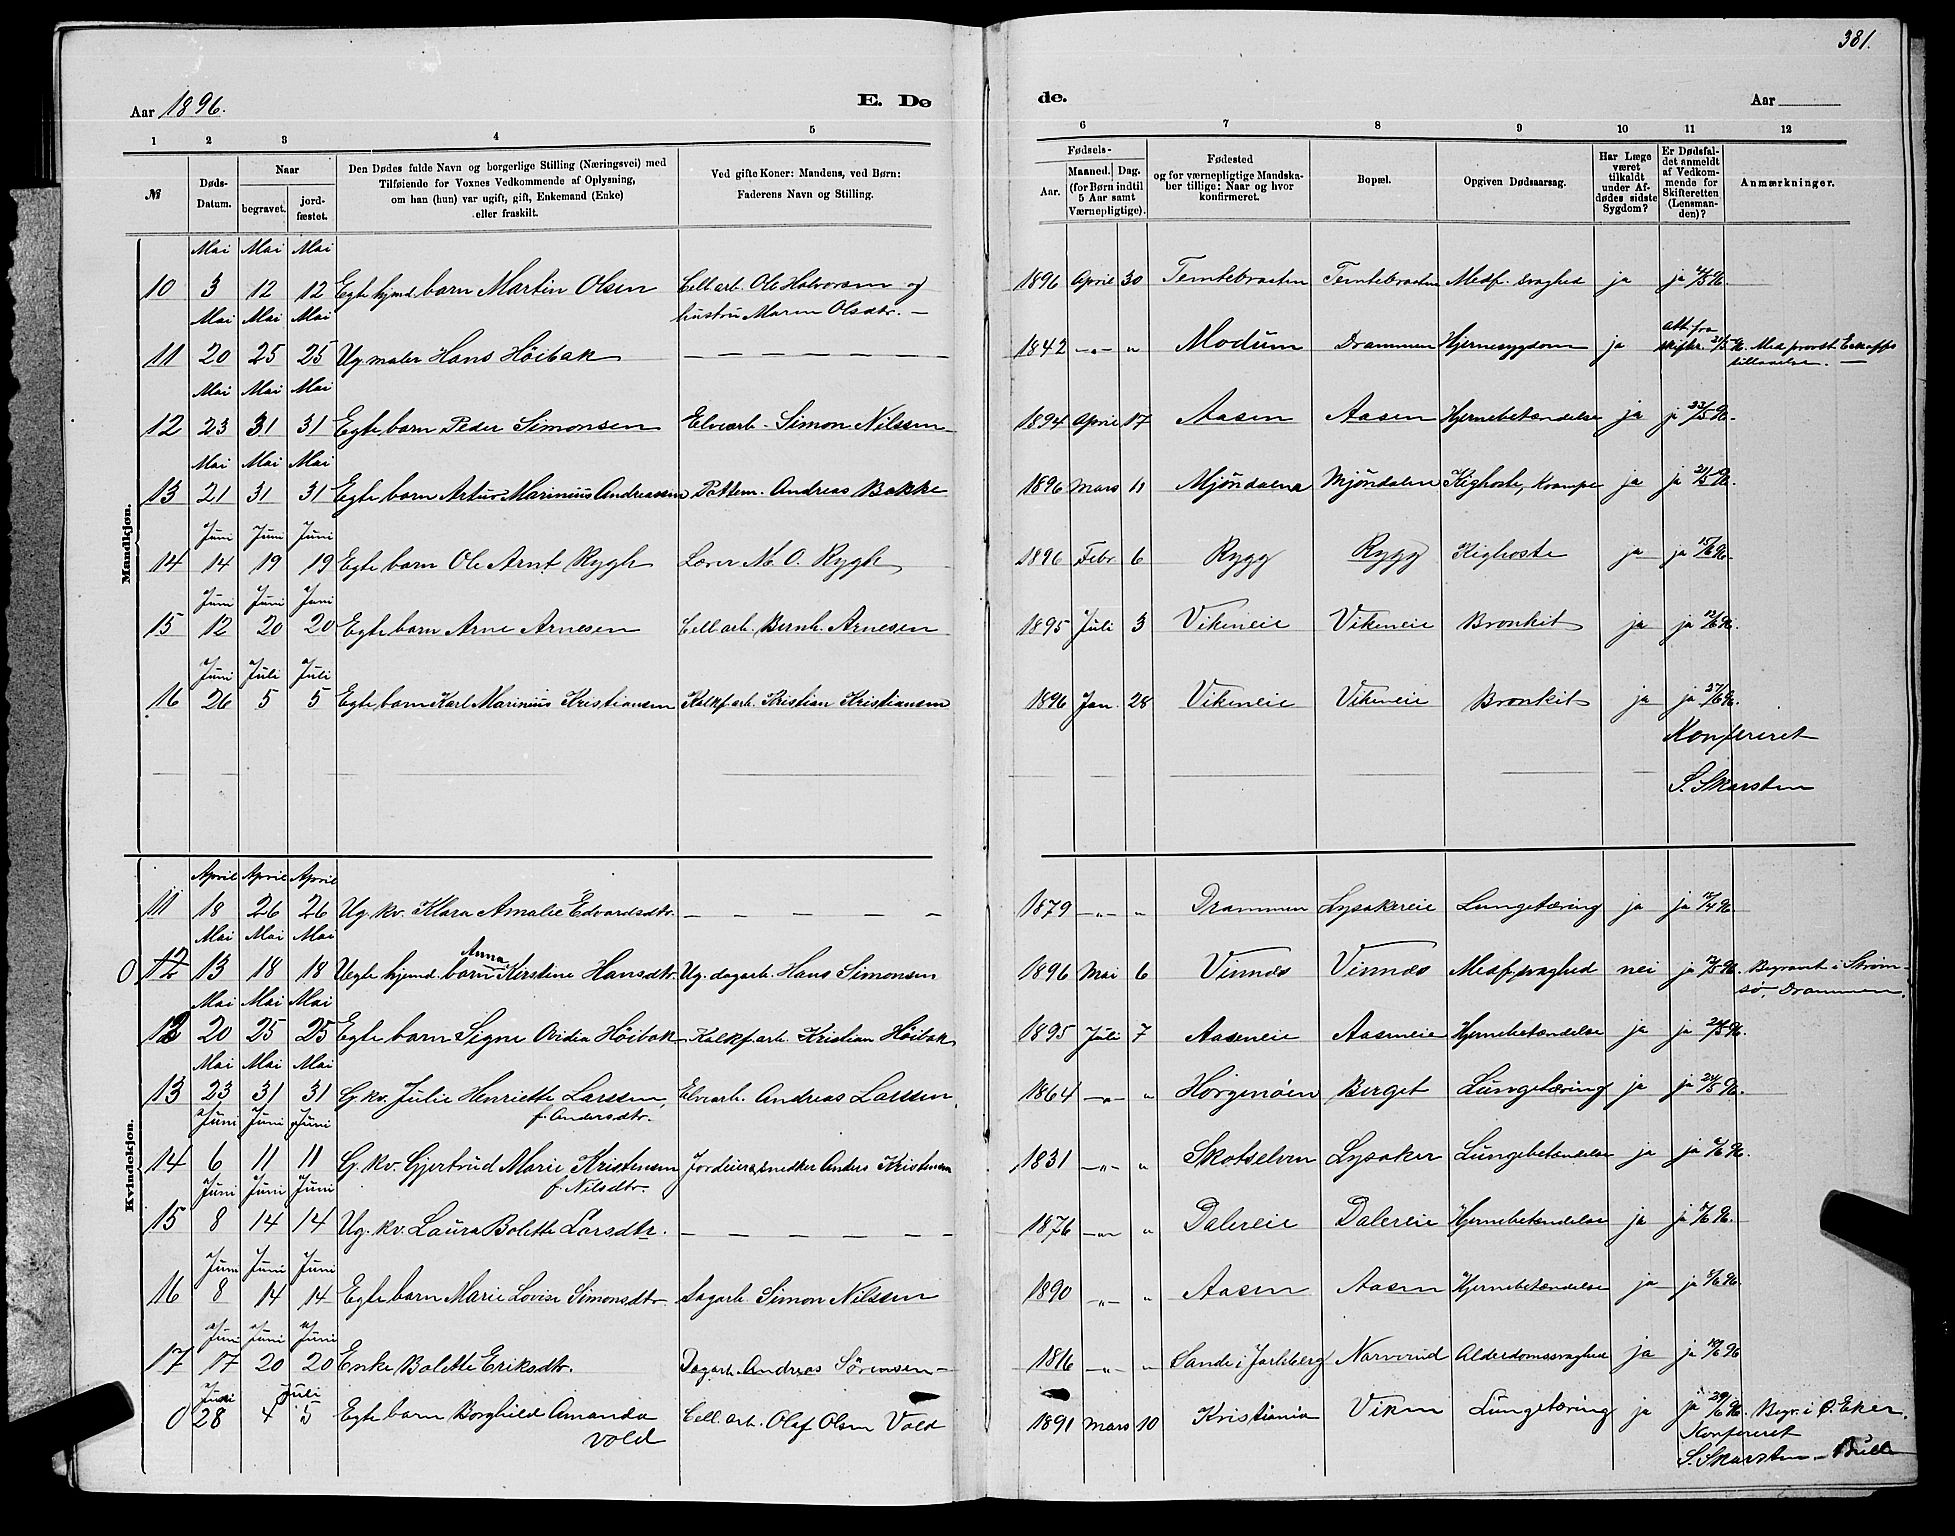 381.
Aar 1896.
E. Dø
de.
Aar
1 2 3 4 5 6 7 8 9 10 11 12
№
Døds-
Datum.
Naar
begravet.
jord-
fæstet.
Den Dødes fulde Navn og borgerlige Stilling (Næringsvei) med
Tilføiende for Voxnes Vedkommende af Oplysning,
om han (hun) var ugift, gift, Enkemand (Enke)
eller fraskilt.
Ved gifte Koner: Mandens, ved Børn:
Faderens Navn og Stilling.
Fødsels-
Aar.
Maaned. Dag.
(for Børn indtil
5 Aar samt
Værnepligtige).
Fødested
og for værnepligtige Mandska-
ber tillige: Naar og hvor
konfirmeret.
Bopæl.
Opgiven Dødsaarsag.
Har Læge
været
tilkaldt
under Af-
dødes sidste
Sygdom?
Er Dødsfal-
det anmeldt
af Vedkom-
mende for
Skifteretten
(Lensman-
den)?
Anmærkninger.
Mandkjøn.
Mai Mai Mai
10 3 12 12 Egte hjemd. barn Martin Olsen Cell arb. Ole Halvorsen og 1896 April 30 Temtebraaten Temtebraaten Medf. svaghed ja ja 4/5 96.
hustru Maren Olsdtr. —
Mai Mai Mai
11 20 25 25 Ug maler Hans Höibak — — — — — — 1842 -„- „ Modum Drammen Hjernesygdom ja att. fra skifter. 21/5 96. Med provst Eckoffs
tilladelse. —
Mai Mai Mai
12 23 31 31 Egte barn Peder Simonsen Elvearb. Simon Nilssen 1894 April 17 Aasen Aasen Hjernebetændelse ja ja 23/5 96.
Mai Mai Mai
13 21 31 31 Egte barn Artur Marinius Andreassen Pottem. Andreas Bakke 1896 Mars 11 Mjöndalen Mjöndalen Kighoste, Krampe ja ja 21/5 96.
Juni Juni Juni
14 14 19 19 Egte barn Ole Arnt Rygh Lærer N. O. Rygh 1896 Febr 6 Rygg Rygg Kighoste ja ja 15/6 96.
Juni Juni Juni
15 12 20 20 Egte barn Arne Arnesen Cell arb. Bernh. Arnesen 1895 Juli 3 Vikeneie Vikeneie Bronkit ja ja 12/6 96.
Juni Juli Juli
16 26 5 5 Egte barn Karl Marinius Kristiansen Kalkf. arb. Kristian Kristiansen 1896 Jan. 28 Vikeneie Vikeneie Bronkit ja ja 27/6 96.
Konfereret
S. Skarsten
Kvindekjøn.
April April April
11 18 26 26 Ug. kv. Klara Amalie Edvardsdtr. — — — — — 1879 -„- „ Drammen Lysakereie Lungetæring ja ja 18/4 96
Mai Mai Mai
0 12 13 18 18 Uegte hjemd. barn Anna Kirstine Hansdtr. Ug. dagarb. Hans Simonsen 1896 Mai 6 Vinnæs Vinnæs Medf. svaghed nei ja 96. Begravet i Strøm-
sø, Drammen.
Mai Mai Mai
12 20 25 25 Egte barn Signe Ovidia Höibak Kalkf. arb. Kristian Höibak 1895 Juli 7 Aaseneie Aaseneie Hjernebetændelse ja ja 21/5 96.
Mai Mai Mai
13 23 31 31 G. kv. Julie Henriette Larssen, Elvearb. Andreas Larssen 1864 -„- „ Horgenöien Berget Lungetæring ja ja 24/5 96.
f. Andersdtr.
Juni Juni Juni
14 6 11 11 G. kv. Gjertrud Marie Kristensen Jordeier, snedker Anders Kristensen 1831 -„- „ Skotselven Lysaker Lungebetændelse ja ja 6/6 96.
f. Nilsdtr.
Juni Juni Juni
15 8 14 14 Ug. kv. Laura Bolette Larsdtr. — — — — — 1876 -„- „ Dalereie Dalereie Hjernebetændelse ja ja 96.
Juni Juni Juni
16 8 14 14 Egte barn Marie Lovise Simonsdtr. Sagarb. Simon Nilssen 1890 -„- „ Aasen Aasen Hjernebetændelse ja ja 96.
Juni Juni Juni
17 17 20 20 Enke Bolette Eriksdtr. Dagarb. Andreas Sörensen — 1816 -„- „ Sande i Jarlsberg Narverud Alderdomssvaghed ja ja 96
Juni Juli
0 28 4 5 Egte barn Borghild Amanda Cell. arb. Olaf Olsen Vold 1891 Mars 10 Kristiania Viken Lungetæring ja ja 29/6 96. Begr. i Ø. Eker.
Vold
Konfereret
S. Skarsten Bull